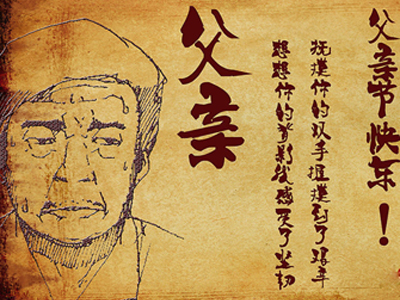 父亲节快乐！
抚摸你的双手我摸到了艰辛
想想你的背影我感受了坚韧
父亲